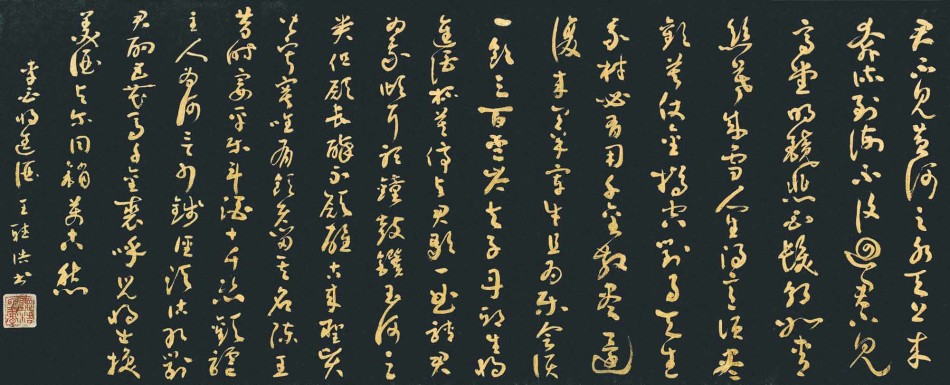 君不見黃河之水天上來
奔流到海不復迴君不見
高堂明鏡悲白髮朝如青
絲暮成雪人生得意須盡
歡莫使金樽空對月天生
我材必有用千金散盡還
復來烹羊宰牛且為樂會須
一飲三百杯岑夫子丹邱生將
進酒杯莫停與君歌一曲請君
為我傾耳聽鐘鼓饌玉何足
貴但願長醉不願醒古來聖賢
皆寂寞唯有飲者留其名陳王
昔時宴平樂斗酒十千恣歡謔
主人為何言少錢徑須沽取對
君酌五花馬千金裘呼兒將出換
美酒與爾同銷萬古愁
李白將進酒 王 洪書